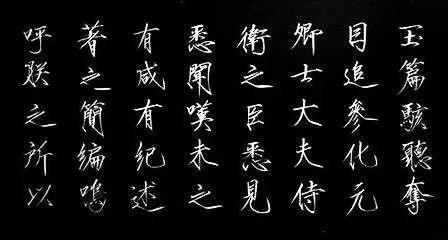 玉篇駭聽奪
目追參化元
卿士大夫侍
衛之臣悉見
悉聞嘆未之
有咸有紀述
著之簡編嗚
呼朕之所以